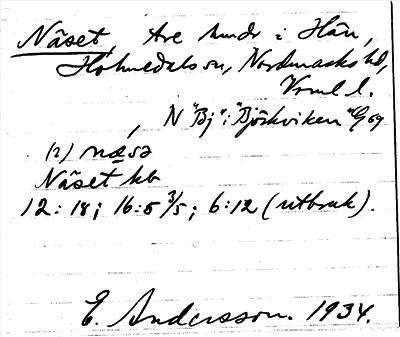 Näset, tre hmdr i Hån,
Holmedals sn, Nordmarks hd,
Vrml l.
N "Bj" i "Björkviken" G 69
(2) næ̀sə
Näset kb
12:18; 16:5 3/5; 6:12 (utbruk).
E. Andersson. 1934.